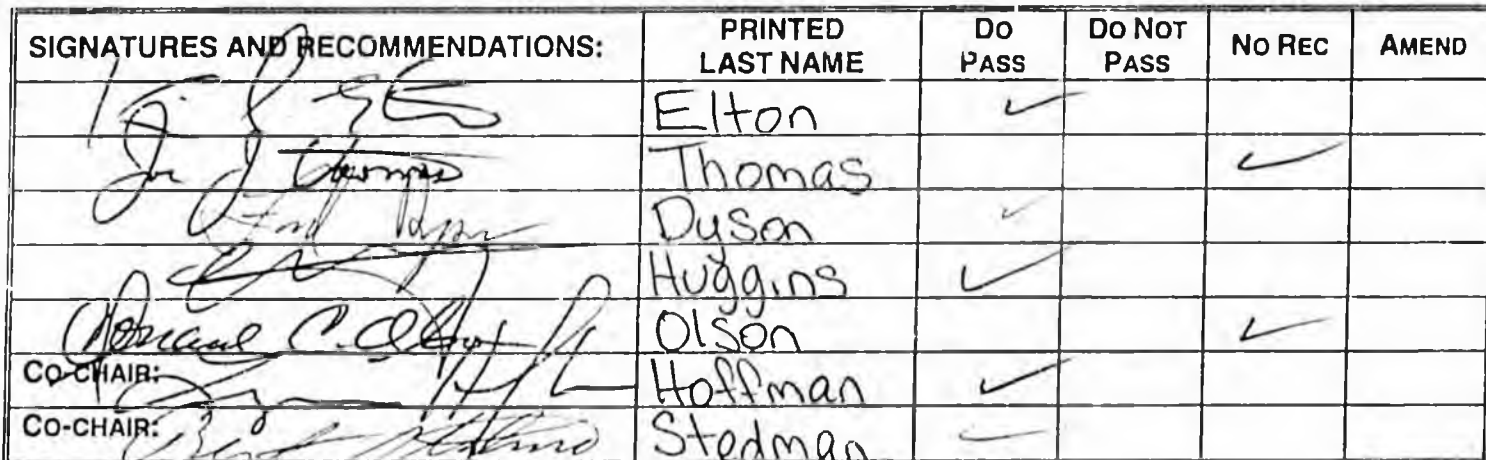 SIGNATURES AND RECOMMENDATIONS: PRINTED LAST NAME DO PASS DO NOT PASS NO REC AMEND
Elton ✓
Thomas Thomas ✓
Dyson ✓
Huggins ✓
C. Olson ✓
CO-CHAIR: Hoffman ✓
CO-CHAIR: Stedman ✓